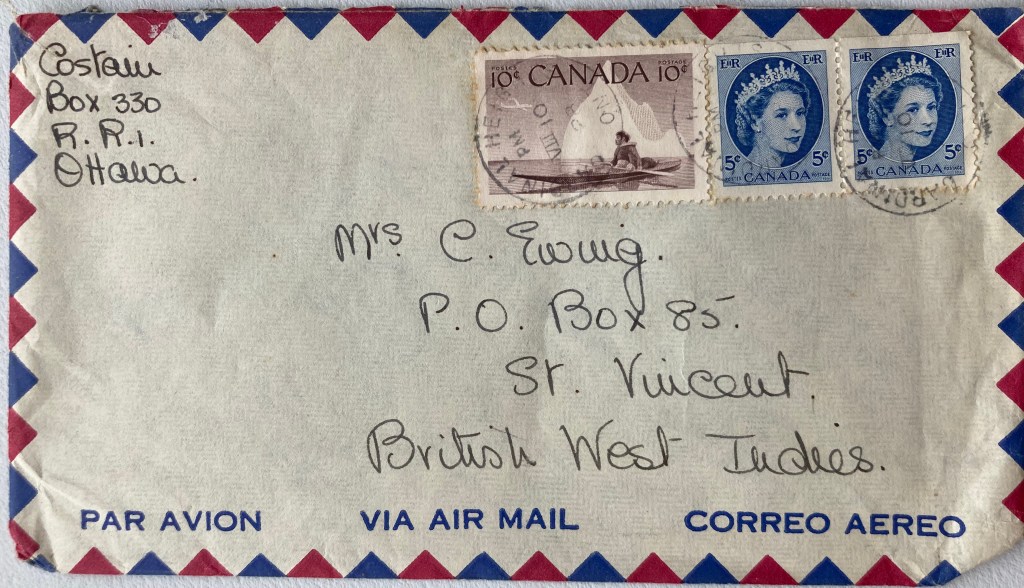 Costain
Box 330
R. R. 1.
Ottawa.
POSTES POSTAGE
10¢ CANADA 10¢
EIIR EIIR
5¢ 5¢
POSTES CANADA POSTAGE
EIIR EIIR
5¢ 5¢
POSTES CANADA POSTAGE
Mrs C. Ewing.
P. O. Box 85.
St. Vincent.
British West Indies.
PAR AVION VIA AIR MAIL CORREO AEREO